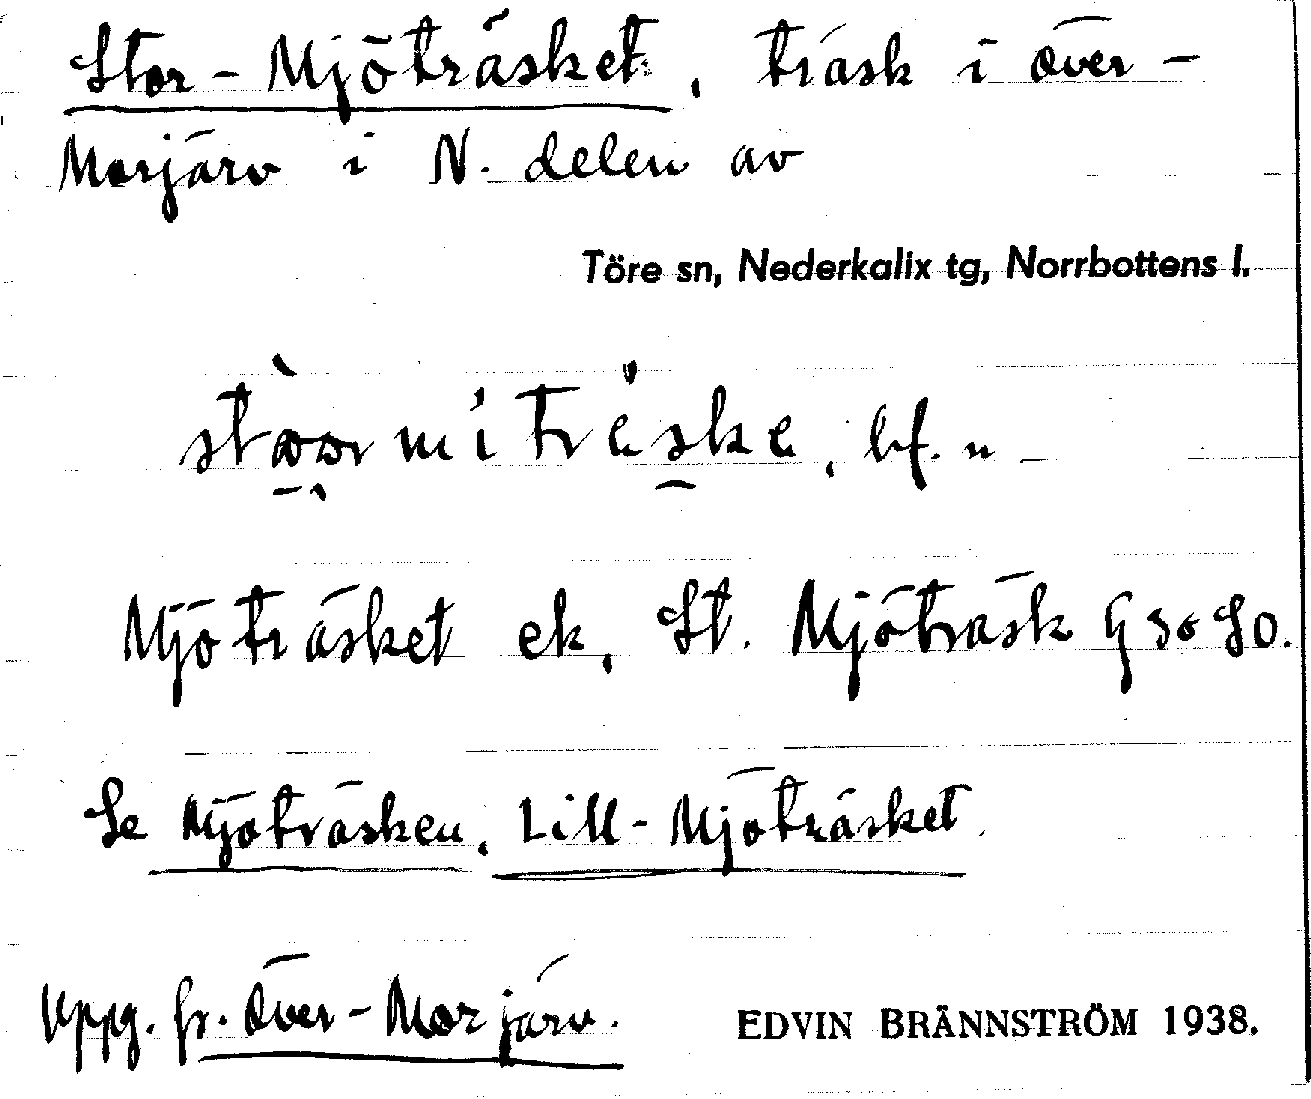 Stor-Mjöträsket, träsk i Över-
Morjärv i N. delen av
Töre sn, Nederkalix tg, Norrbottens l.
bf. n
Mjöträsket ek, St. Mjöträsk G 30 SO.
Se Mjöträsken, Lill-Mjöträsket.
Uppg. fr. Över-Morjärv.
EDVIN BRÄNNSTRÖM 1938.